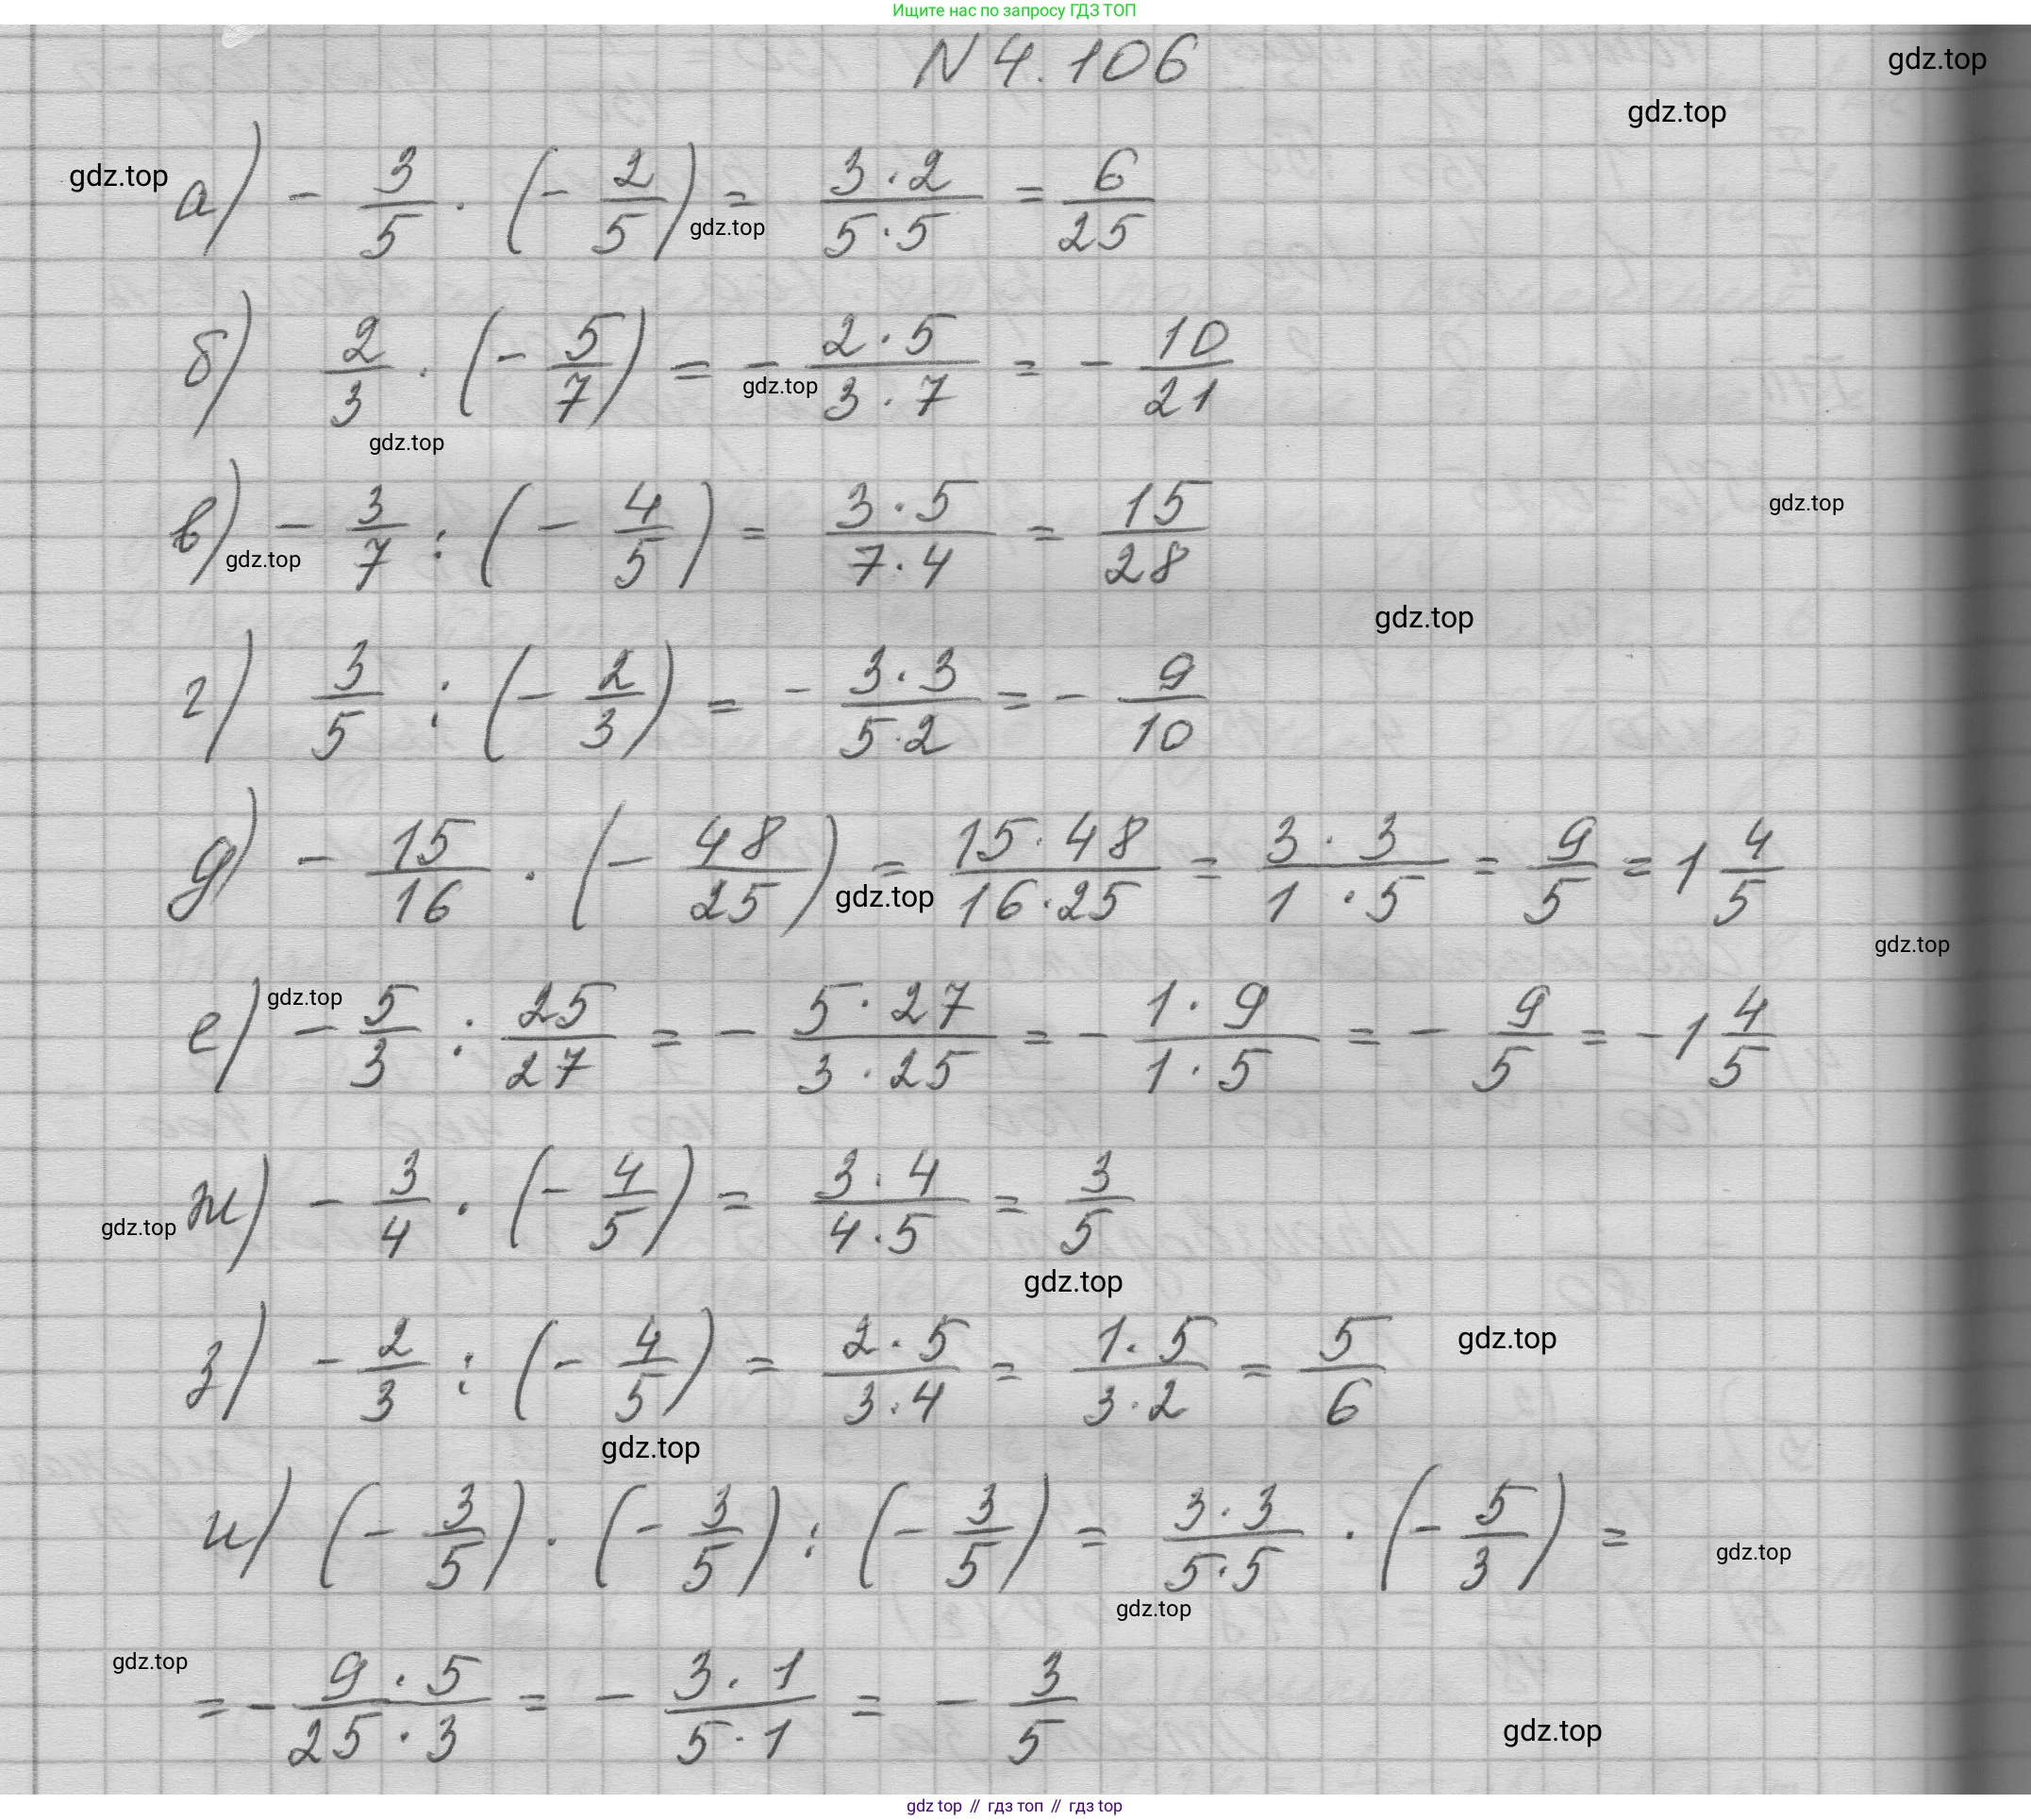 Ищите нас по запросу ГДЗ ТОП
N 4.106
gdz.top
gdz.top
gdz.top
а) - 3/5 · (- 2/5) = (3·2)/(5·5) = 6/25
gdz.top
б) 2/3 · (- 5/7) = - (2·5)/(3·7) = - 10/21
gdz.top
gdz.top
в) - 3/7 : (- 4/5) = (3·5)/(7·4) = 15/28
gdz.top
gdz.top
gdz.top
г) 3/5 : (- 2/3) = - (3·3)/(5·2) = - 9/10
д) - 15/16 · (- 48/25) = (15·48)/(16·25) = (3·3)/(1·5) = 9/5 = 1 4/5
gdz.top
gdz.top
gdz.top
е) - 5/3 : 25/27 = - (5·27)/(3·25) = - (1·9)/(1·5) = - 9/5 = -1 4/5
ж) - 3/4 · (- 4/5) = (3·4)/(4·5) = 3/5
gdz.top
gdz.top
з) - 2/3 : (- 4/5) = (2·5)/(3·4) = (1·5)/(3·2) = 5/6
gdz.top
gdz.top
и) (- 3/5) · (- 3/5) : (- 3/5) = (3·3)/(5·5) · (- 5/3) =
gdz.top
gdz.top
gdz.top
= - (9·5)/(25·3) = - (3·1)/(5·1) = - 3/5
gdz.top
gdz top // гдз топ // гдз top